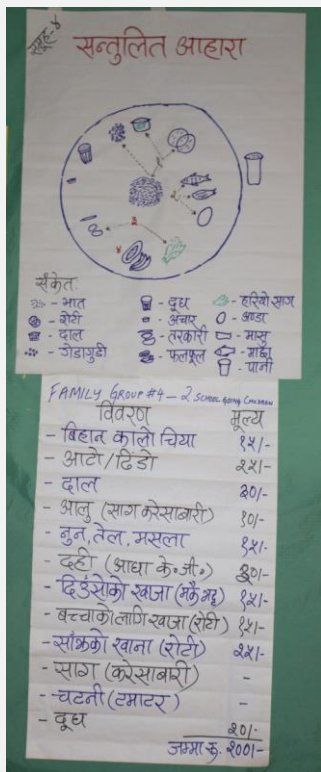 समूह-४
सन्तुलित आहारा
१
२
३
४
संकेत:
- भात
- रोटी
- दाल
- गेडागुडी
- दूध
- अचार
- तरकारी
- फलफूल
- हरियो साग
- अण्डा
- मासु
- माछा
- पानी
FAMILY GROUP #4 - 2 SCHOOL GOING CHILDREN
विवरण मूल्य
- बिहान कालो चिया १५/-
- आटो/ढिंडो २५/-
- दाल ३०/-
- आलु (साग करेसाबारी) १०/-
- नुन, तेल, मसला १५/-
- दही (आधा के.जी.) ३०/-
- दिउँसोको खाजा (मकै भट्ट) १५/-
- बच्चाको लागि खाजा (रोटी) १५/-
- साँझको खाना (रोटी) २५/-
- साग (करेसाबारी) -
- चटनी (टमाटर) -
- दूध २०/-
जम्मा रु. २००/-